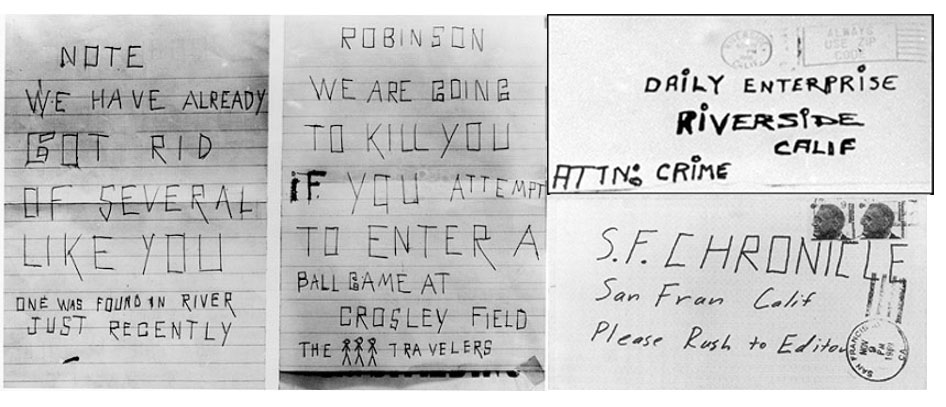 NOTE
WE HAVE ALREADY
GOT RID
OF SEVERAL
LIKE YOU
ONE WAS FOUND IN RIVER
JUST RECENTLY
ROBINSON
WE ARE GOING
TO KILL YOU
IF. YOU ATTEMPT
TO ENTER A
BALL GAME AT
CROSLEY FIELD
THE TRAVELERS
ALWAYS
USE ZIP
CODE
DAILY ENTERPRISE
RiVERSiDE
CALIF
ATTN: CRIME
S.F. CHRONICLE
San Fran Calif
Please Rush to Editor
SAN FRANCISCO
NOV
PM
1969
CA